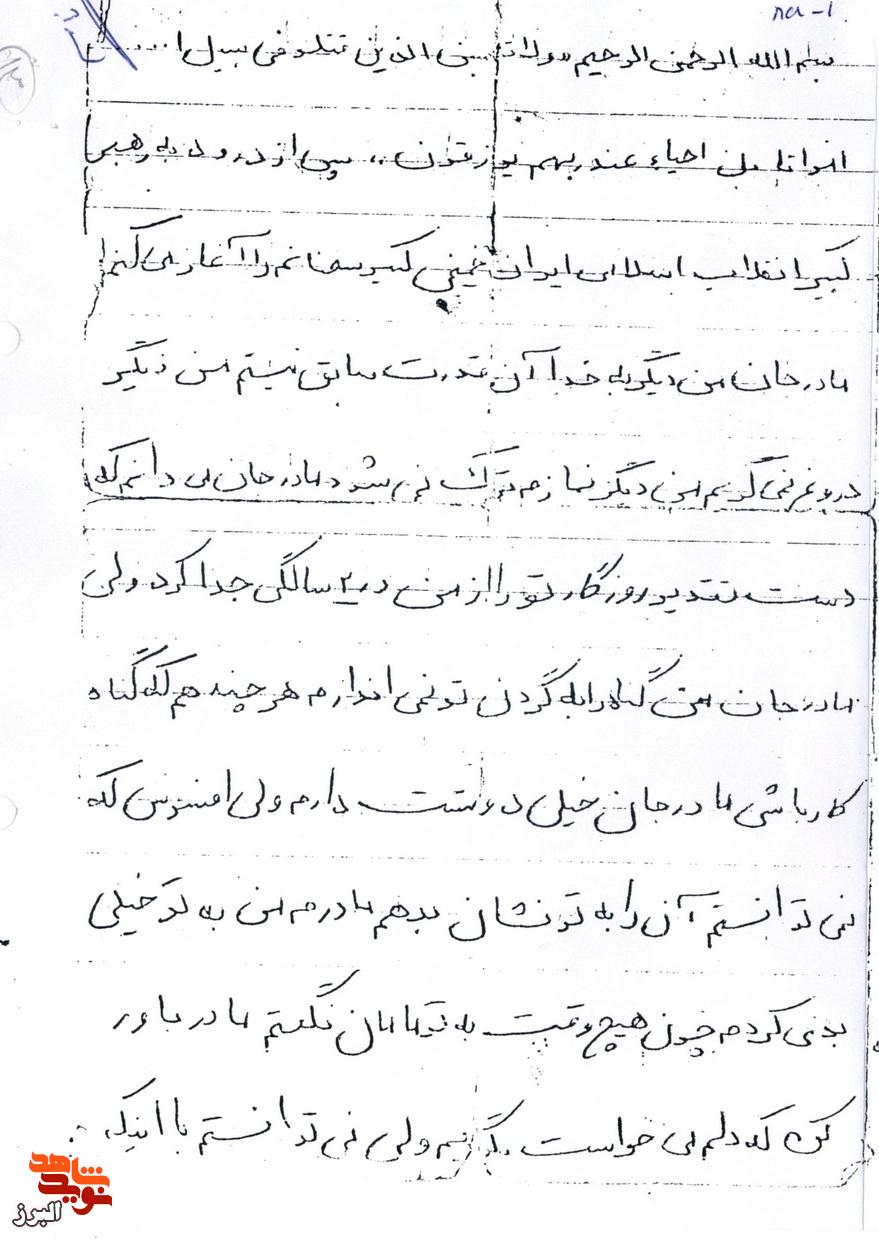 بسم الله الرحمن الرحیم «ولا تحسبن الذین قتلو فی سبیل ا....
امواتا بل احیاء عند ربهم یورزقون،، پس از درود به رهبر
کبیر انقلاب اسلامی ایران خمینی کبیر سخنانم را آغاز می کنم
مادر جان من دیگر به خدا آن قدرت سابق نیستم من دیگر
دروغ نمی گویم من دیگر نمازم ترک نمی شود مادر جان می دانم که
دست تقدیر روزگار تو را از من در سالگی جدا کرد ولی
مادر جان من گناه را به گردن تو نمی اندازم هر چند هم که گناه
کار باشی مادر جان خیلی دوستت دارم ولی افسوس که
نمی توانستم آن را به تو نشان بدهم مادرم من به تو خیلی
بدی کردم چون هیچ وقت به تو مامان نگفتم مادر باور
کن که دلم می خواست بگویم ولی نمی توانستم با اینکه
نوید شاهد
البرز